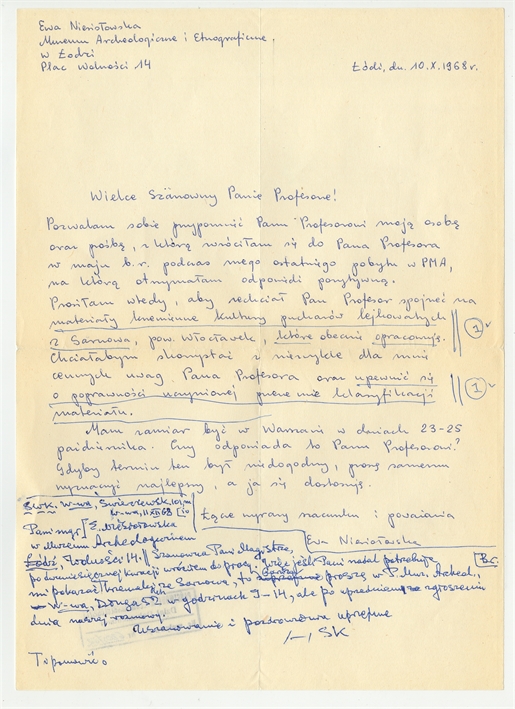 Ewa Niesiołowska
Muzeum Archeologiczne i Etnograficzne
w Łodzi
Plac Wolności 14
Łódź, dn. 10.X.1968 r.
Wielce Szanowny Panie Profesorze!
Pozwalam sobie przypomnieć Panu Profesorowi moją osobę
oraz prośbę, z którą zwróciłam się do Pana Profesora
w maju b.r. podczas mego ostatniego pobytu w PMA,
na którą otrzymałam odpowiedź pozytywną.
Prosiłam wtedy, aby zechciał Pan Profesor spojrzeć na
materiały krzemienne kultury pucharów lejkowatych
z Sarnowa, pow. Włocławek, które obecnie opracowuję.
1
Chciałabym skorzystać z niezwykle dla mnie
cennych uwag Pana Profesora oraz upewnić się
1
o poprawności uczynionej przeze mnie klasyfikacji
materiału.
Mam zamiar być w Warszawie w dniach 23-25
października. Czy odpowiada to Panu Profesorowi?
Gdyby termin ten był niedogodny, proszę samemu
wyznaczyć najlepszy, a ja się dostosuję.
Łączę wyrazy szacunku i poważania
Ewa Niesiołowska
W-wa, Świerczewsk.
W-wa, 68
Pani mgr E. Niesiołowska
w Muzeum Archeologicznem
Łódź, Wolności 14. Szanowna Pani Magistrze,
po kuracji wróciłem do pracy. Więc jeśli Pani nadal potrzebuje
mi pokazać krzemienie z Sarnowa, to proszę w P. Muz. Archeol.,
W-wa, Długa 52 w godzinach 9-14, ale po uprzedniem zgłoszeniu
dnia naszej rozmowy.
Uszanowanie i pozdrowienia uprzejme
SK